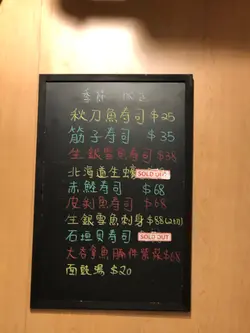 季節 限定
秋刀魚寿司 $25
筋子寿司 $35
生銀雪魚寿司 $38
北海道生蠔 SOLD OUT
赤鯥寿司 $68
皮剥魚寿司 $68
生銀雪魚刺身 $88
石垣貝寿司 SOLD OUT
太吞拿魚腩 $68
面豉湯 $20